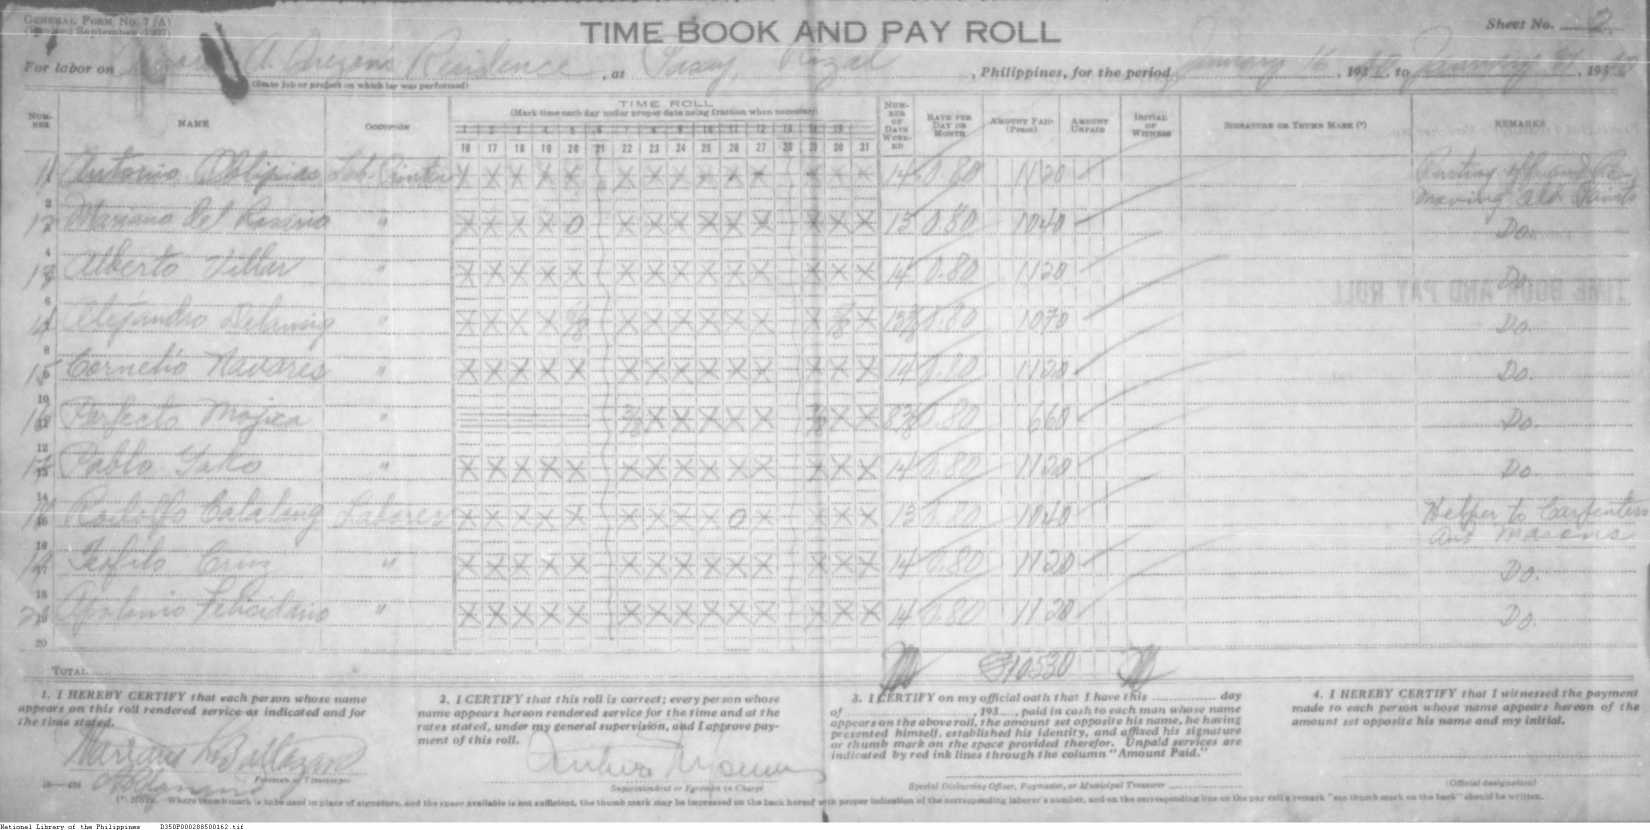 GENERAL FORM NO. 7 (A)
(Revised September, 1927)
TIME BOOK AND PAY ROLL
Sheet No. 2
For labor on A. Residence, at Pasay, Rizal, Philippines, for the period January 16, 193, to January 31, 193
(State job or project on which labor was performed)
NUMBER NAME OCCUPATION TIME ROLL NUMBER OF DAYS WORKED RATE PER DAY OR MONTH AMOUNT PAID (Pesos) AMOUNT UNPAID INITIAL OF WITNESS SIGNATURE OR THUMB MARK (*) REMARKS
(Mark time each day under proper date using fraction when necessary)
1 2 3 4 5 6 7 8 9 10 11 12 13 14 15
16 17 18 19 20 21 22 23 24 25 26 27 28 29 30 31
11 Antonio Lab. X X X X X X X X X X X X X X 14 0.80 11 20
12 Mariano Del Rosario " X X X X 0 X X X X X X X X X 13 0.80 10 40 Do.
13 Alberto Villar " X X X X X X X X X X X X X X 14 0.80 11 20 Do.
14 Alejandro " X X X X X X X X X X X X 0.80 10 70 Do.
15 Cornelio Navares " X X X X X X X X X X X X X X 14 0.80 11 20 Do.
16 Perfecto Mojica " X X X X X X X 0.80 6 60 Do.
17 Pablo " X X X X X X X X X X X X X X 14 0.80 11 20 Do.
18 Rodolfo Catalong Laborer X X X X X X X X X 0 X X X X 13 0.80 10 40 Helper to Carpenters
and Masons
19 Teofilo Cruz " X X X X X X X X X X X X X X 14 0.80 11 20 Do.
20 Antonio Feliciano " X X X X X X X X X X X X X X 14 0.80 11 20 Do.
TOTAL 105 30
1. I HEREBY CERTIFY that each person whose name
appears on this roll rendered service as indicated and for
the time stated.
2. I CERTIFY that this roll is correct; every person whose
name appears hereon rendered service for the time and at the
rates stated, under my general supervision, and I approve pay-
ment of this roll.
3. I CERTIFY on my official oath that I have this day
of , 193 , paid in cash to each man whose name
appears on the above roll, the amount set opposite his name, he having
presented himself, established his identity, and affixed his signature
or thumb mark on the space provided therefor. Unpaid services are
indicated by red ink lines through the column "Amount Paid."
4. I HEREBY CERTIFY that I witnessed the payment
made to each person whose name appears hereon of the
amount set opposite his name and my initial.
Mariano Baltazar
Foreman or Timekeeper
Superintendent or Foreman in Charge
Special Disbursing Officer, Paymaster, or Municipal Treasurer
(Official designation)
(*) NOTE.—Where thumb mark is to be used in place of signature, and the space available is not sufficient, the thumb mark may be impressed on the back hereof with proper indication of the corresponding laborer's number, and on the corresponding line on the pay roll a remark "see thumb mark on the back" should be written.
National Library of the Philippines D350P000288500162.tif